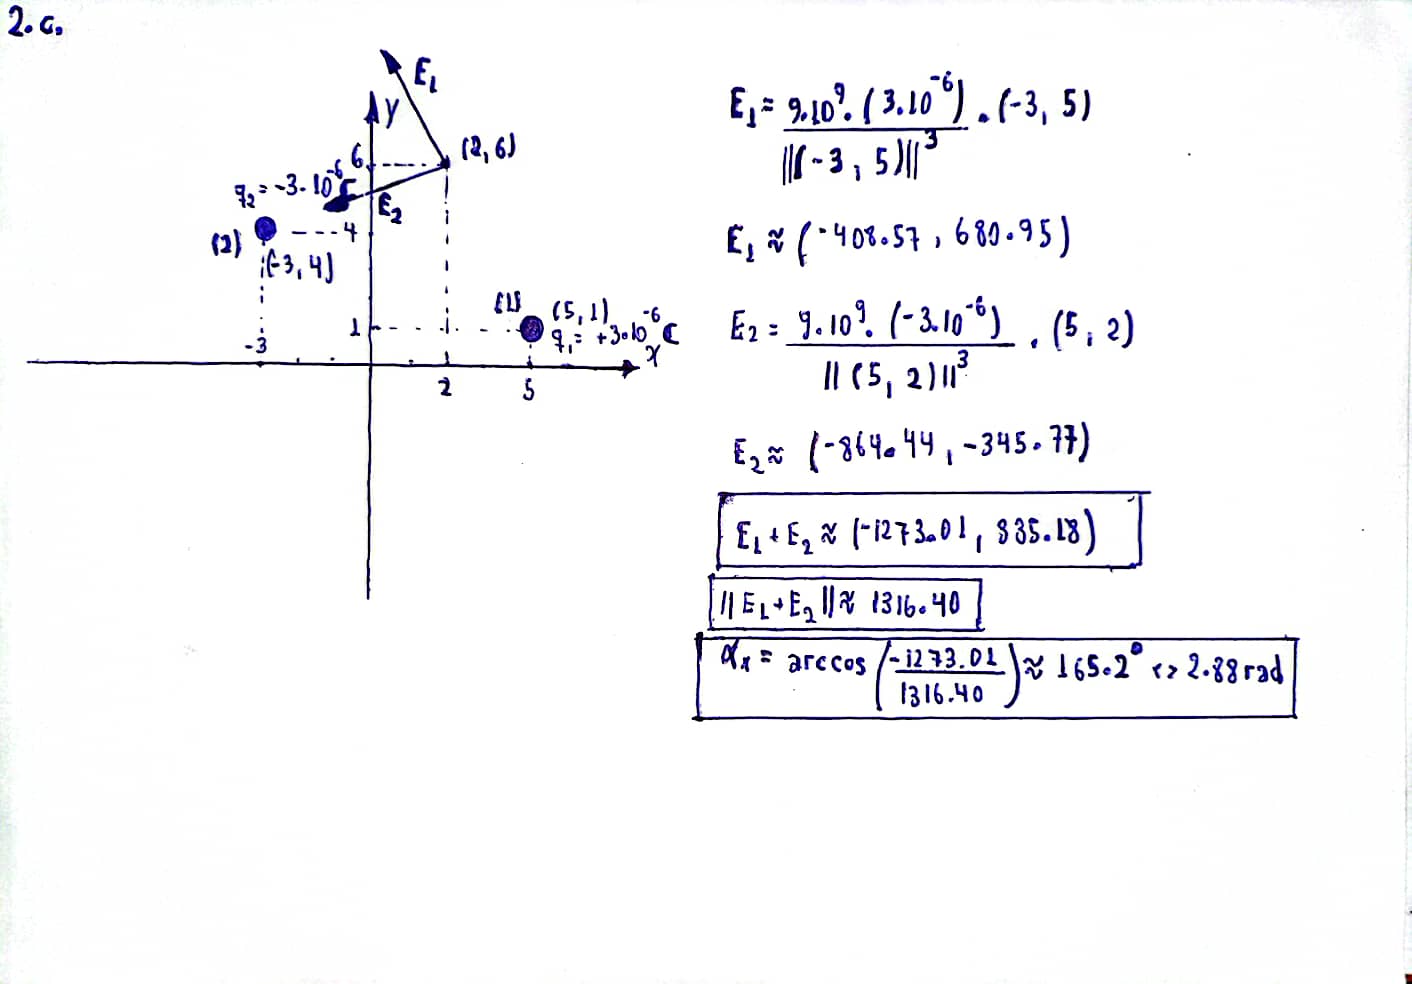 2.c,
E₁
y
6
(2,6)
q₂ = -3.10⁻⁶ C
E₂
(2)
4
(-3,4)
(1)
(5,1)
q₁ = +3.10⁻⁶ C
1
-3
x
2
5
E₁ = 9.10⁹.(3.10⁻⁶) . (-3, 5)
||(-3, 5)||³
E₁ ≈ (-408.57, 680.95)
E₂ = 9.10⁹.(-3.10⁻⁶) . (5, 2)
||(5, 2)||³
E₂ ≈ (-864.44, -345.77)
E₁ + E₂ ≈ (-1273.01, 335.18)
||E₁+E₂|| ≈ 1316.40
αₓ = arccos (-1273.01 / 1316.40) ≈ 165.2° <> 2.88 rad